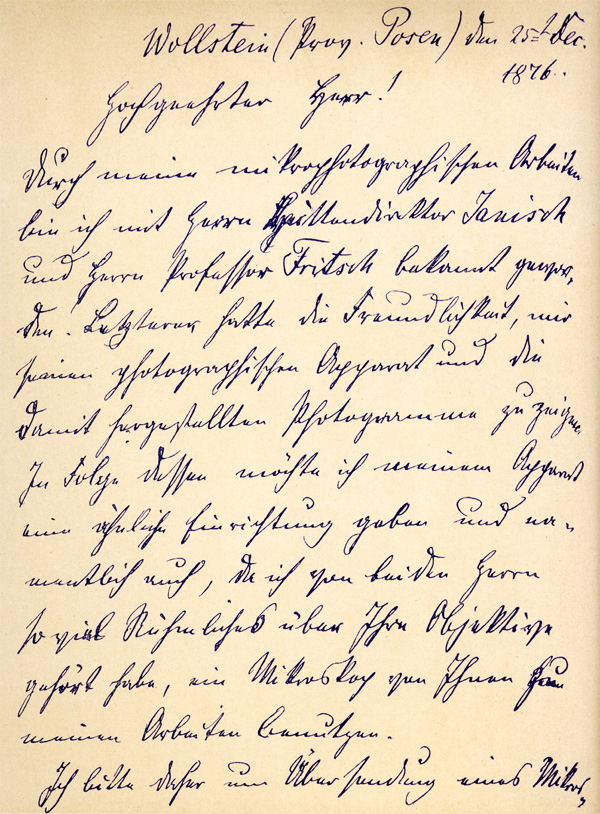 Wollstein (Prov. Posen) den 25ᵗ Dec.
1876.
Hochgeehrter Herr!
Durch meine mikrophotographischen Arbeiten
bin ich mit Herrn Hüttendirektor Janisch
und Herrn Professor Fritsch bekannt gewor-
den. Letzterer hatte die Freundlichkeit, mir
seinen photographischen Apparat und die
damit hergestellten Photogramme zu zeigen.
In Folge dessen möchte ich meinem Apparat
eine ähnliche Einrichtung geben und na-
mentlich auch, da ich von beiden Herrn
so viel Rühmliches über Ihre Objektive
gehört habe, ein Mikroskop von Ihnen zu
meinen Arbeiten benutzen.
Ich bitte daher um Übersendung eines Mikros-